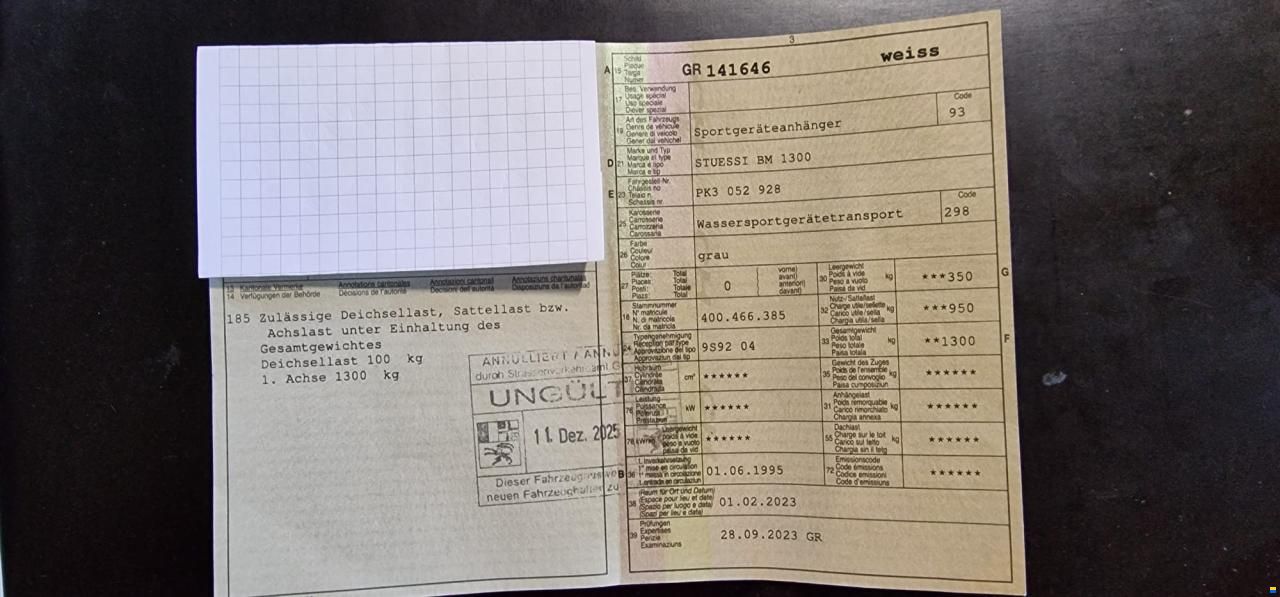 13 Kantonale Vermerke Annotations cantonales Annotazioni cantonali Annotaziuns chantunalas
14 Verfügungen der Behörde Décisions de l'autorité Decisioni dell'autorità Disposiziuns da l'autoritad
185 Zulässige Deichsellast, Sattellast bzw.
Achslast unter Einhaltung des
Gesamtgewichtes
Deichsellast 100 kg
1. Achse 1300 kg
ANNULLIERT / ANNU
durch Strassenverkehrsamt G
UNGÜLT
11. Dez. 2025
Dieser Fahrzeugausw
neuen Fahrzeughalter zu
3
A 15 Schild
Plaque
Targa
Numer
GR 141646 weiss
17 Bes. Verwendung
Usage spécial
Uso speciale
Diever spezial
19 Art des Fahrzeugs
Genre de véhicule
Genere di veicolo
Gener dal vehichel
Sportgeräteanhänger
Code
93
D 21 Marke und Typ
Marque et type
Marca e tipo
Marca e tip
STUESSI BM 1300
E 23 Fahrgestell-Nr.
Châssis no
Telaio n.
Schassis nr.
PK3 052 928
25 Karosserie
Carrosserie
Carrozzeria
Carossaria
Wassersportgerätetransport
Code
298
26 Farbe
Couleur
Colore
Colur
grau
27 Plätze: Total
Places: Total
Posti: Totale
Plazs: Total
0
vorne)
avant)
anteriori)
davant)
30 Leergewicht
Poids à vide
Peso a vuoto
Paisa da vid
kg
***350
G
18 Stammnummer
N° matricule
N. di matricola
Nr. da matricla
400.466.385
32 Nutz-/Sattellast
Charge utile/sellette
Carico utile/sella
Chargia utila/sella
kg
***950
24 Typengenehmigung
Réception par type
Approvazione del tipo
Approvaziun dal tip
9S92 04
33 Gesamtgewicht
Poids total
Peso totale
Paisa totala
kg
**1300
F
37 Hubraum
Cylindrée
Cilindrata
cm³
******
35 Gewicht des Zuges
Poids de l'ensemble
Peso del convoglio
Paisa cumposiziun
kg
******
76 Leistung
Puissance
Potenza
Prestaziun
kW
******
31 Anhängelast
Poids remorquable
Carico rimorchiato
Chargia annexa
kg
******
78 kW/kg
Leergewicht
poids à vide
peso a vuoto
paisa da vid
******
55 Dachlast
Charge sur le toit
Carico sul tetto
Chargia sin il tetg
kg
******
B 36 1. Inverkehrsetzung
1re mise en circulation
1a messa in circolazione
1. entrada en circulaziun
01.06.1995
72 Emissionscode
Code émissions
Codice emissioni
Code d'emissiuns
******
38 (Raum für Ort und Datum)
(Espace pour lieu et date)
(Spazio per luogo e data)
(Spazi per lieu e data)
01.02.2023
39 Prüfungen
Expertises
Perizie
Examinaziuns
28.09.2023 GR